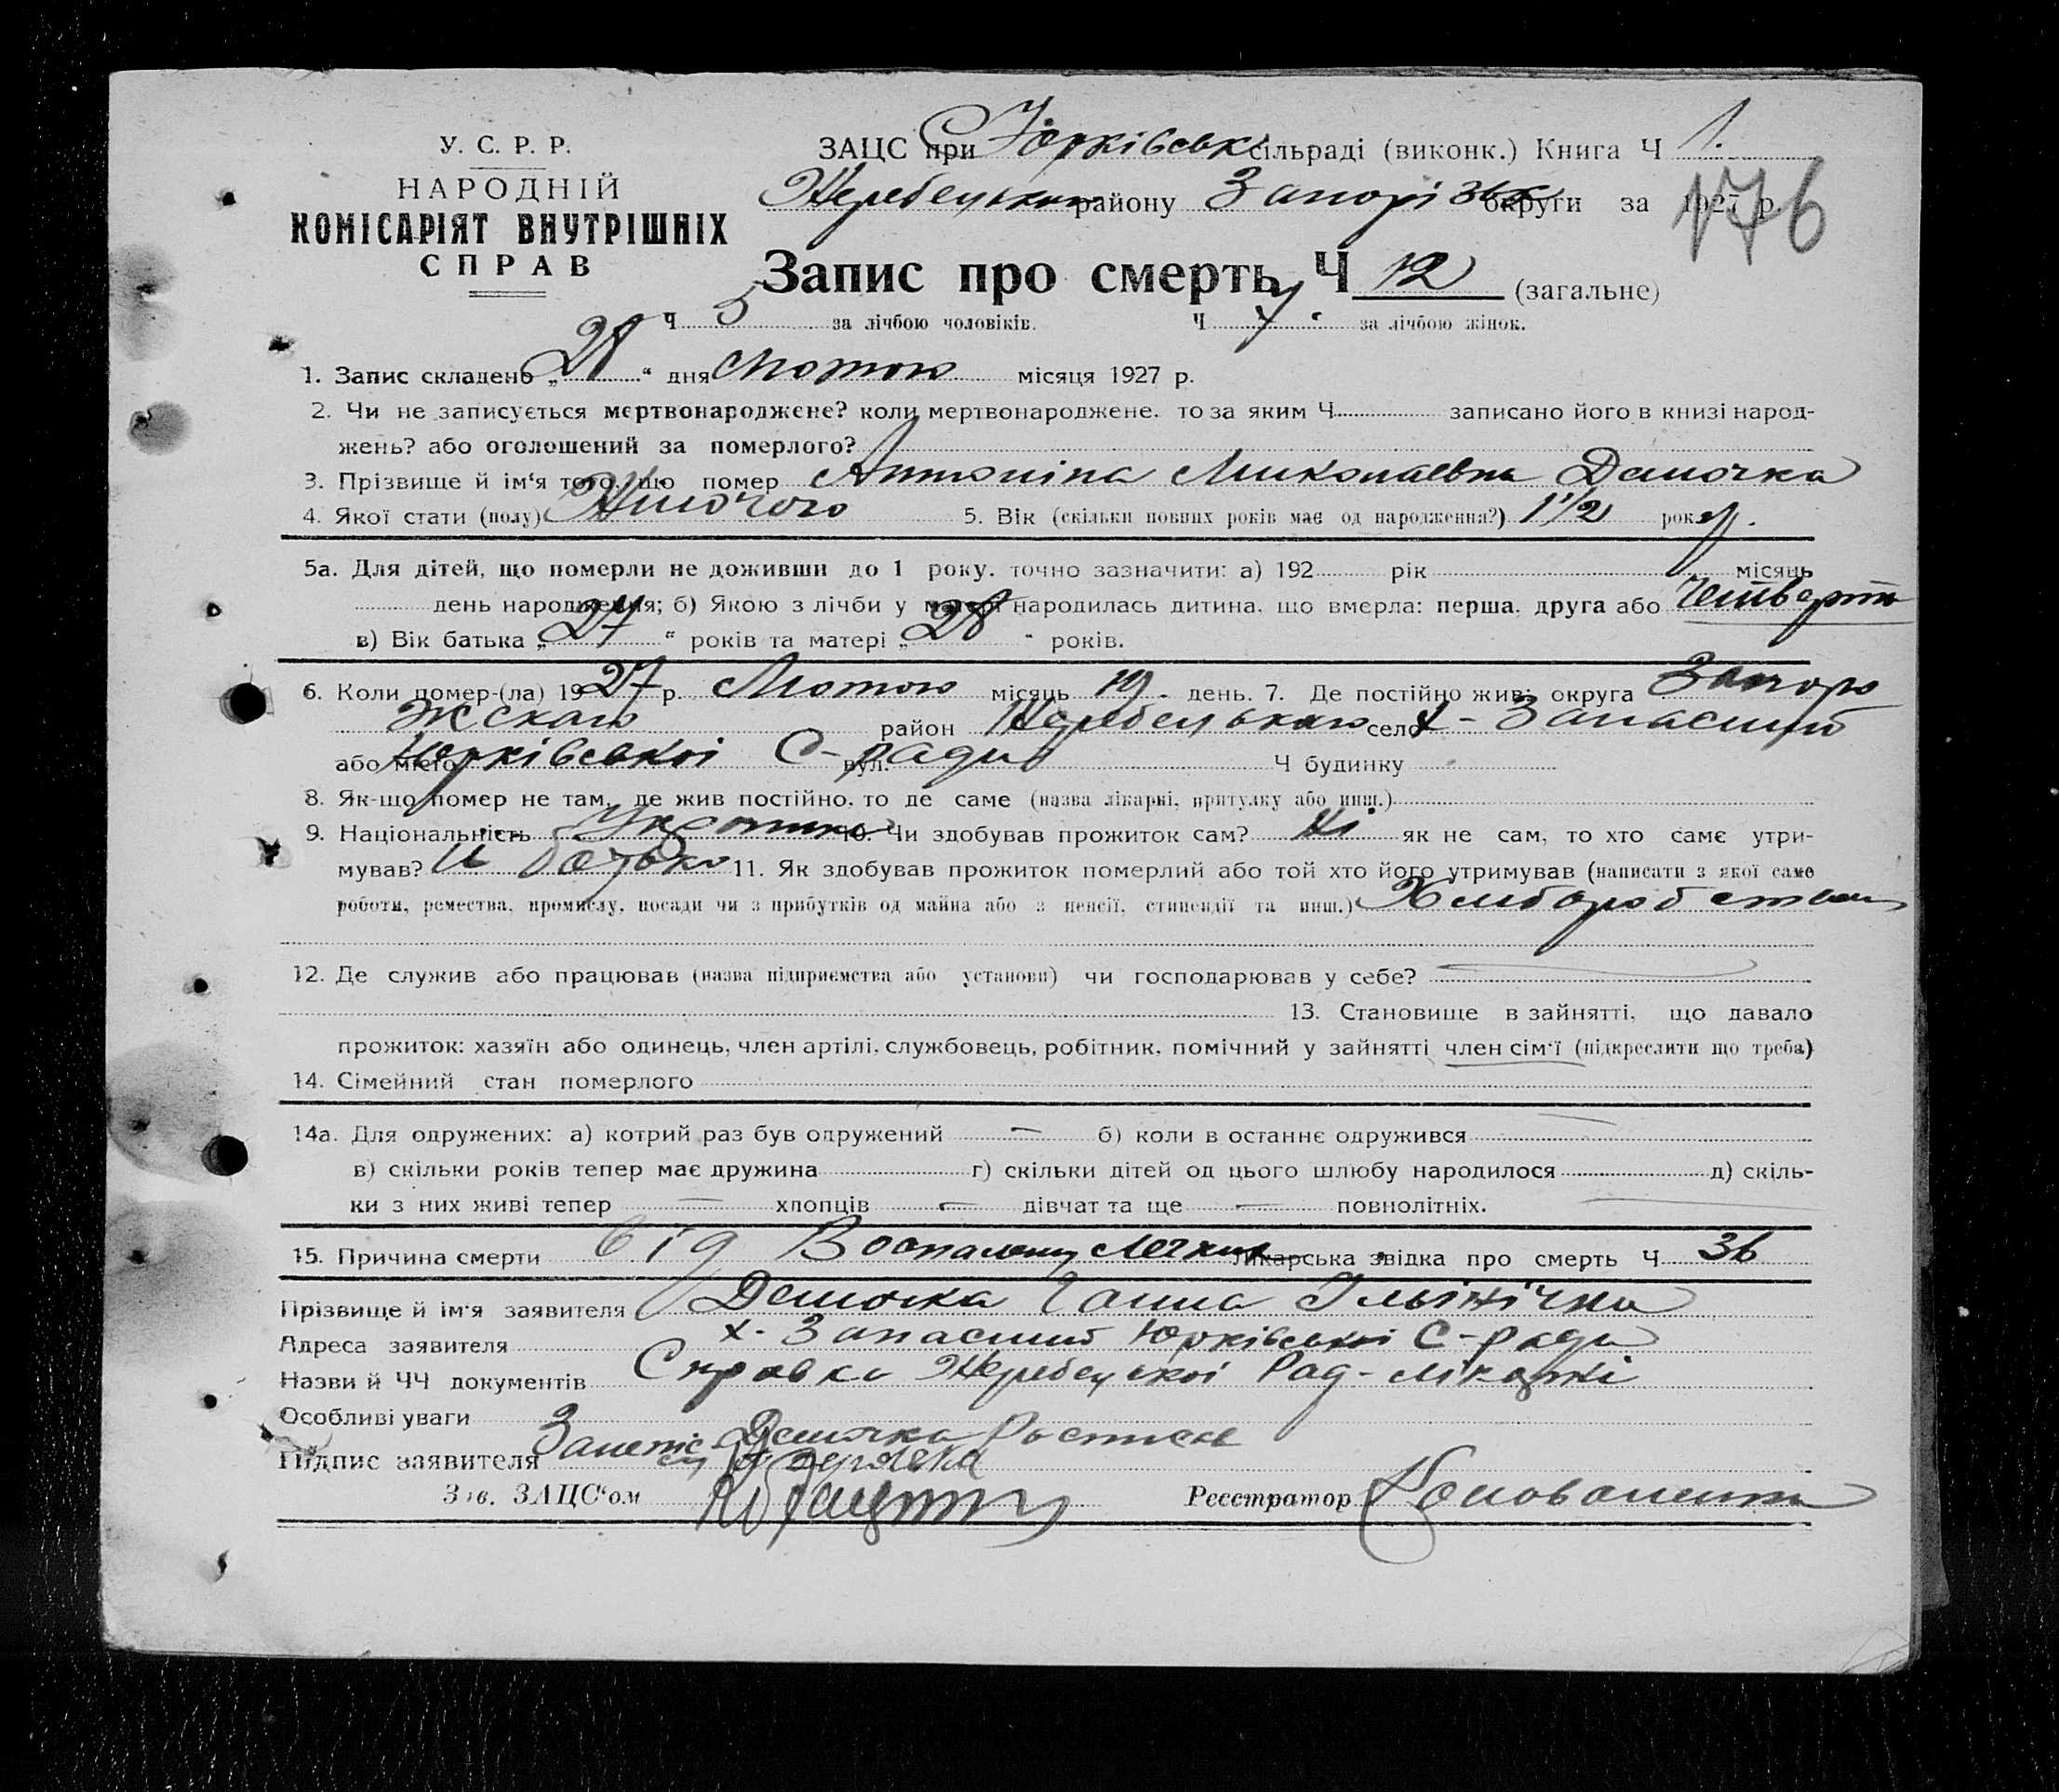 У. С. Р. Р.
НАРОДНІЙ
КОМІСАРІЯТ ВНУТРІШНІХ
СПРАВ
ЗАЦС при Юрківськ сільраді (виконк.) Книга Ч 1.
Жеребецьким району Запорізьк округи за 1927 р.
176
Запис про смерть Ч 12 (загальне)
Ч 5 за лічбою чоловіків. Ч 7. за лічбою жінок.
1. Запис складено „ 21 “ дня Лютого місяця 1927 р.
2. Чи не записується мертвонароджене? коли мертвонароджене, то за яким Ч. записано його в книзі народ-
жень? або оголошений за померлого?
3. Прізвище й ім'я того, що помер Антоніна Миколаевна Демочка
4. Якої стати (полу) Жіночого 5. Вік (скільки повних років має од народження?) 1 1/2 рок
5а. Для дітей, що померли не доживши до 1 року, точно зазначити: а) 192 рік місяць
день народження; б) Якою з лічби у матері народилась дитина, що вмерла: перша, друга або Четверта
в) Вік батька „ 27 “ років та матері „ 28 “ років.
6. Коли помер-(ла) 1927 р. Лютого місяць 19. день. 7. Де постійно жив: округа Запорі
жскаго район Жеребецькаго село х- Запасний
або місто Юрківської С-ради вул. Ч будинку
8. Як-що помер не там, де жив постійно, то де саме (назва лікарні, притулку або инш.)
9. Національність Украинка 10. Чи здобував прожиток сам? Ні як не сам, то хто саме утри-
мував? батько 11. Як здобував прожиток померлий або той хто його утримував (написати з якої саме
роботи, ремества, промислу, посади чи з прибутків од майна або з пенсії, стипендії та инш.) Хлибороб
12. Де служив або працював (назва підприємства або установи) чи господарював у себе?
13. Становище в зайнятті, що давало
прожиток: хазяїн або одинець, член артілі, службовець, робітник, помічний у зайнятті член сім'ї (підкреслити що треба)
14. Сімейний стан померлого
14а. Для одружених: а) котрий раз був одружений — б) коли в останнє одружився —
в) скільки років тепер має дружина г) скільки дітей од цього шлюбу народилося д) скіль-
ки з них живі тепер — хлопців — дівчат та ще — повнолітніх.
15. Причина смерти від Лікарська звідка про смерть Ч 36
Прізвище й ім'я заявителя Демочка Ганна Ільінічна
Адреса заявителя х- Запасний Юрківської С-ради
Назви й ЧЧ документів Справка Жеребецької Рад-лікарні
Особливі уваги
Підпис заявителя Демочка
Зав. ЗАЦС'ом Реєстратор